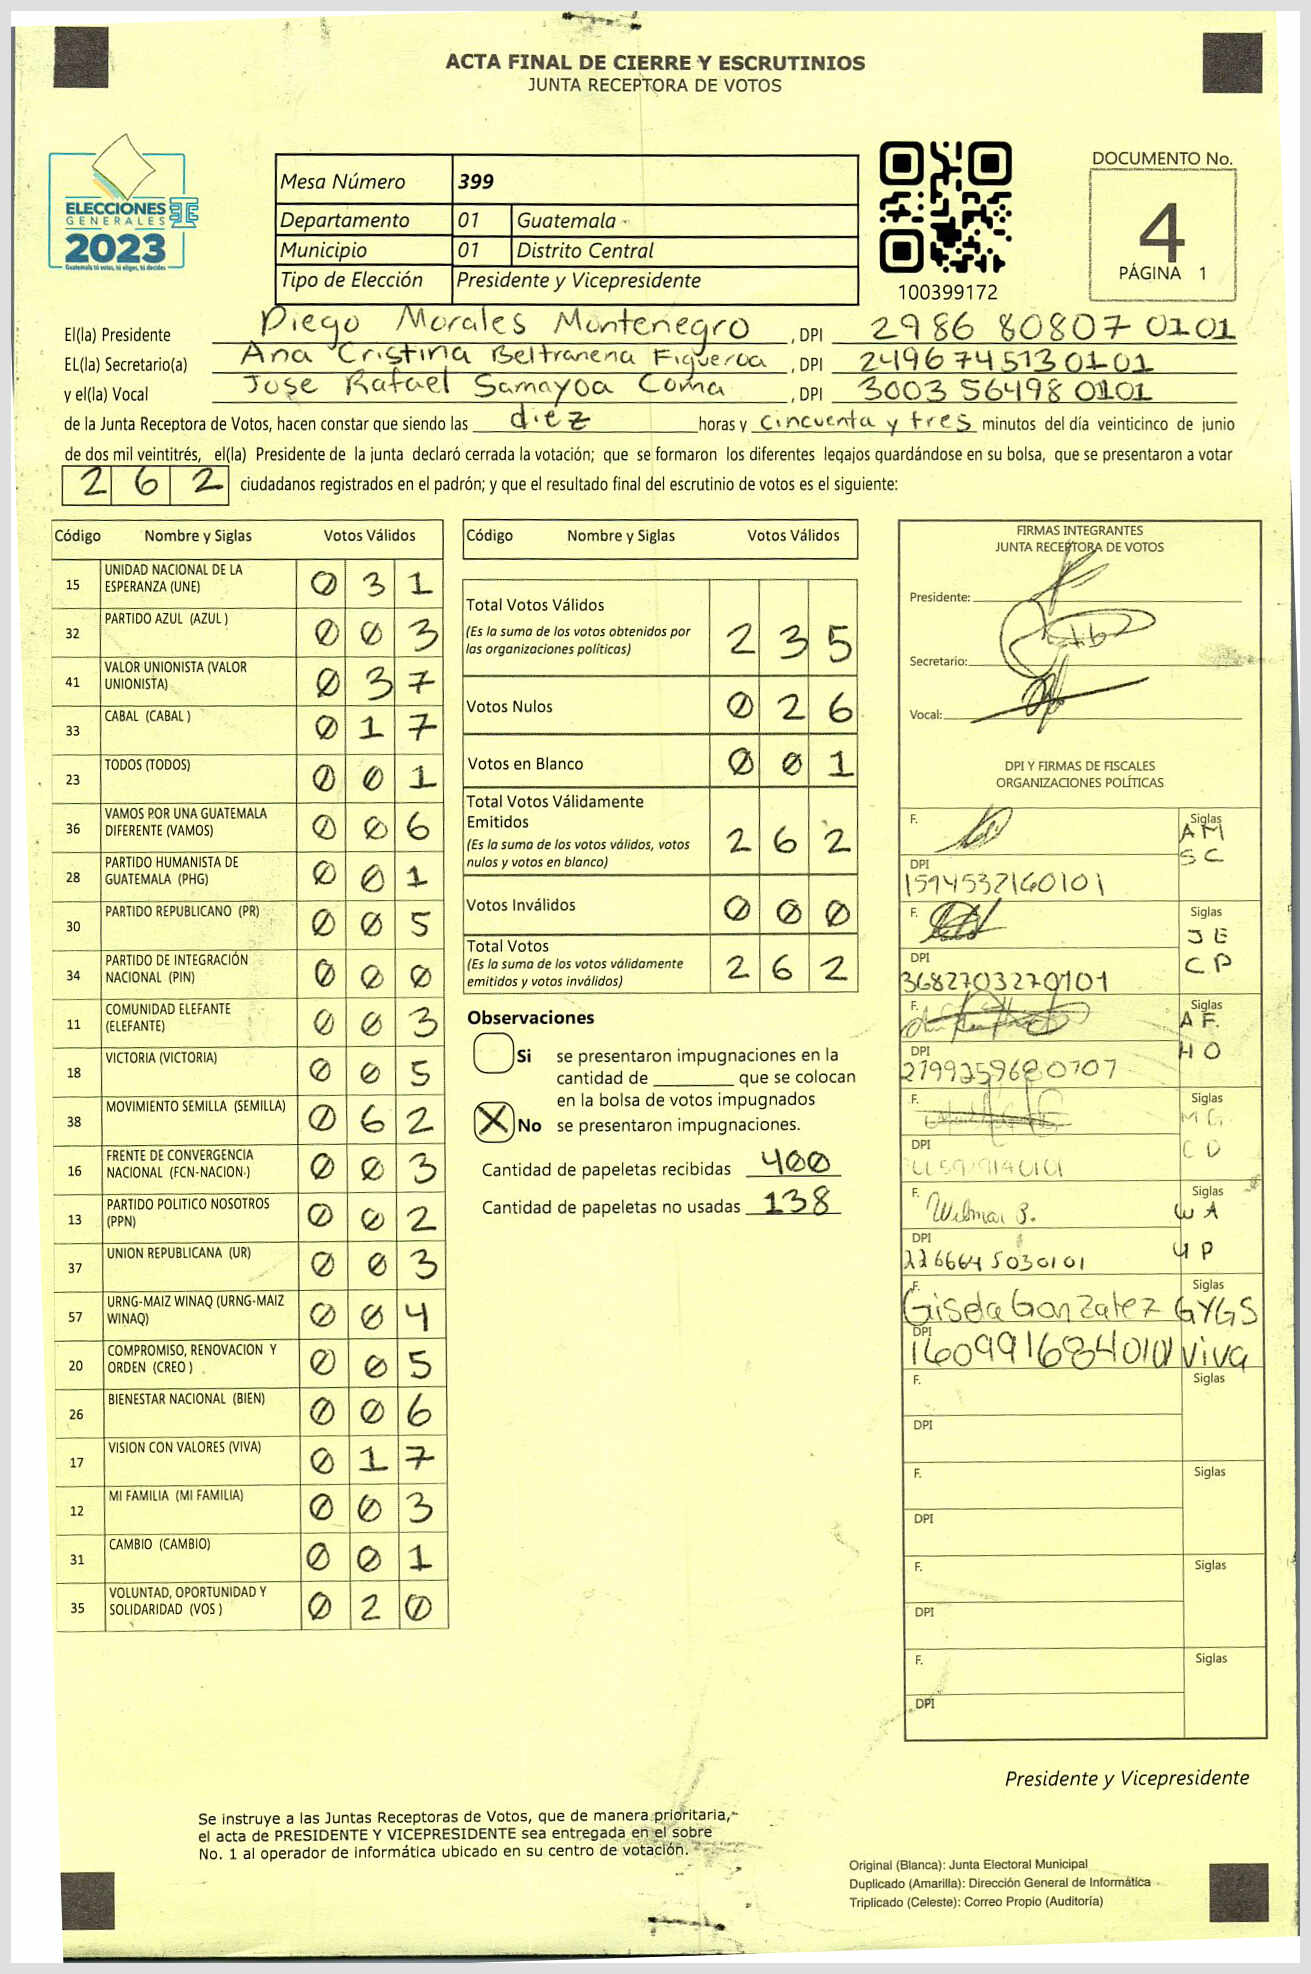 ACTA FINAL DE CIERRE Y ESCRUTINIOS
JUNTA RECEPTORA DE VOTOS
ELECCIONES
GENERALES
2023
Guatemala tú votas, tú eliges, tú decides
Mesa Número 399
Departamento 01 Guatemala
Municipio 01 Distrito Central
Tipo de Elección Presidente y Vicepresidente
100399172
DOCUMENTO No.
4
PÁGINA 1
El(la) Presidente Diego Morales Montenegro , DPI 2986 80807 0101
EL(la) Secretario(a) Ana Cristina Beltranena Figueroa , DPI 2496745130101
y el(la) Vocal Jose Rafael Samayoa Coma , DPI 3003 56498 0101
de la Junta Receptora de Votos, hacen constar que siendo las diez horas y cincuenta y tres minutos del día veinticinco de junio
de dos mil veintitrés, el(la) Presidente de la junta declaró cerrada la votación; que se formaron los diferentes legajos guardándose en su bolsa, que se presentaron a votar
262 ciudadanos registrados en el padrón; y que el resultado final del escrutinio de votos es el siguiente:
Código Nombre y Siglas Votos Válidos
15 UNIDAD NACIONAL DE LA ESPERANZA (UNE) 031
32 PARTIDO AZUL (AZUL ) 003
41 VALOR UNIONISTA (VALOR UNIONISTA) 037
33 CABAL (CABAL ) 017
23 TODOS (TODOS) 001
36 VAMOS POR UNA GUATEMALA DIFERENTE (VAMOS) 006
28 PARTIDO HUMANISTA DE GUATEMALA (PHG) 001
30 PARTIDO REPUBLICANO (PR) 005
34 PARTIDO DE INTEGRACIÓN NACIONAL (PIN) 000
11 COMUNIDAD ELEFANTE (ELEFANTE) 003
18 VICTORIA (VICTORIA) 005
38 MOVIMIENTO SEMILLA (SEMILLA) 062
16 FRENTE DE CONVERGENCIA NACIONAL (FCN-NACION) 003
13 PARTIDO POLITICO NOSOTROS (PPN) 002
37 UNION REPUBLICANA (UR) 003
57 URNG-MAIZ WINAQ (URNG-MAIZ WINAQ) 004
20 COMPROMISO, RENOVACION Y ORDEN (CREO ) 005
26 BIENESTAR NACIONAL (BIEN) 006
17 VISION CON VALORES (VIVA) 017
12 MI FAMILIA (MI FAMILIA) 003
31 CAMBIO (CAMBIO) 001
35 VOLUNTAD, OPORTUNIDAD Y SOLIDARIDAD (VOS ) 020
Código Nombre y Siglas Votos Válidos
Total Votos Válidos 235
(Es la suma de los votos obtenidos por
las organizaciones políticas)
Votos Nulos 026
Votos en Blanco 001
Total Votos Válidamente
Emitidos 262
(Es la suma de los votos válidos, votos
nulos y votos en blanco)
Votos Inválidos 000
Total Votos 262
(Es la suma de los votos válidamente
emitidos y votos inválidos)
Observaciones
Si se presentaron impugnaciones en la
cantidad de ________ que se colocan
en la bolsa de votos impugnados
X No se presentaron impugnaciones.
Cantidad de papeletas recibidas 400
Cantidad de papeletas no usadas 138
FIRMAS INTEGRANTES
JUNTA RECEPTORA DE VOTOS
Presidente:
Secretario:
Vocal:
DPI Y FIRMAS DE FISCALES
ORGANIZACIONES POLÍTICAS
F. Siglas AM SC
DPI 1594532160101
F. Siglas JE CP
DPI 3682703270101
F. Siglas AF. HO
DPI 2799259680707
F. Siglas MG. CD
DPI
F. Wilmar B. Siglas WA UP
DPI 2266645030101
F. Gisela Gonzalez Siglas GYGS
DPI 1609916840101 Viva
F. Siglas
DPI
F. Siglas
DPI
F. Siglas
DPI
F. Siglas
DPI
Presidente y Vicepresidente
Se instruye a las Juntas Receptoras de Votos, que de manera prioritaria,
el acta de PRESIDENTE Y VICEPRESIDENTE sea entregada en el sobre
No. 1 al operador de informática ubicado en su centro de votación.
Original (Blanca): Junta Electoral Municipal
Duplicado (Amarilla): Dirección General de Informática
Triplicado (Celeste): Correo Propio (Auditoría)